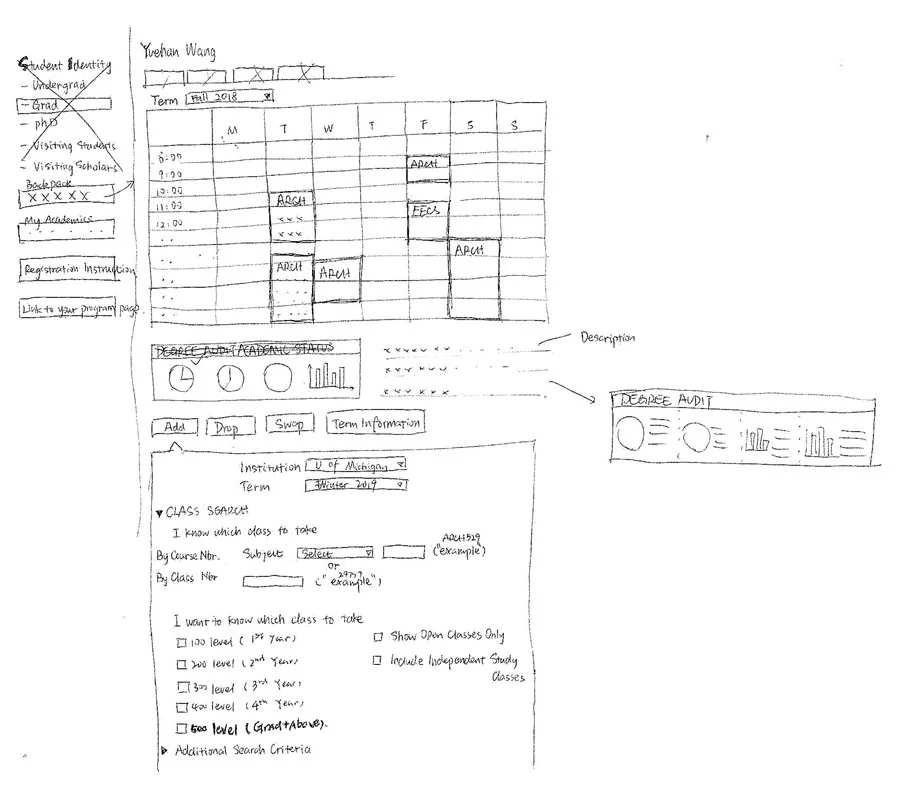 Yuehan Wang
Student Identity
- Undergrad
- Grad
- phD
- Visiting Students
- Visiting Scholars
Backpack
x x x x x
My Academics
Registration Instruction
Link to your program page.
Term Fall 2018
M T W T F S S
8:00
9:00
10:00
11:00
12:00
ARCH
EECS
ARCH
x x x
x x x
ARCH
ARCH
ARCH
DEGREE AUDIT/ACADEMIC STATUS
Description
DEGREE AUDIT
Add Drop Swap Term Information
Institution U of Michigan
Term Winter 2019
CLASS SEARCH
I know which class to take
By Course Nbr. Subject Select ARCH529 ("example")
or
By Class Nbr 29757 ("example")
I want to know which class to take
100 level (1st Year)
200 level (2nd Year)
300 level (3rd Year)
400 level (4th Year)
500 level (Grad+Above).
Show Open Classes Only
Include Independent Study
Classes
Additional Search Criteria